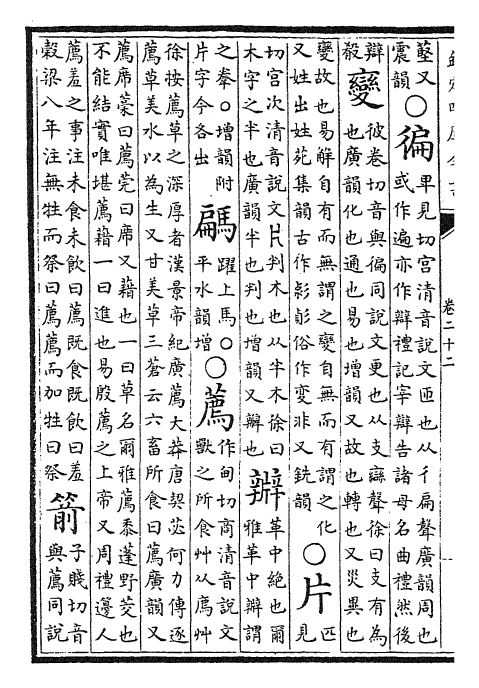 又
震韻
○徧
卑見切宮清音說文匝也从彳扁聲廣韻周也
或作遍亦作辯禮記宰辯告諸母名曲禮然後
辯
殺
變
彼卷切音與徧同說文更也从攴䜌聲徐曰攴有為
也廣韻化也通也易也增韻又故也轉也又災異也
變故也易解自有而無謂之變自無而有謂之化
又姓出姓苑集韻古作彰彭俗作变非又銑韻
○片
匹
見
切宮次清音說文片判木也从半木徐曰
木字之半也廣韻半也判也增韻又辦也
辨
革中絶也爾
雅革中辨謂
之韏○增韻附
片字今各出
騗
躍上馬○
平水韻增
○薦
作甸切商清音說文
獸之所食艸从廌艸
徐按薦草之深厚者漢景帝紀廣薦大莽唐契苾何力傳逐
薦草美水以為生又甘美草三蒼云六畜所食曰薦廣韻又
薦席藁曰薦莞曰席又藉也一曰草名爾雅薦黍蓬野茭也
不能結實唯堪薦藉一曰進也易殷薦之上帝又周禮籩人
薦羞之事注未食未飲曰薦既食既飲曰羞
穀梁八年注無牲而祭曰薦薦而加牲曰祭
箭
子賤切音
與薦同說
卷二十二